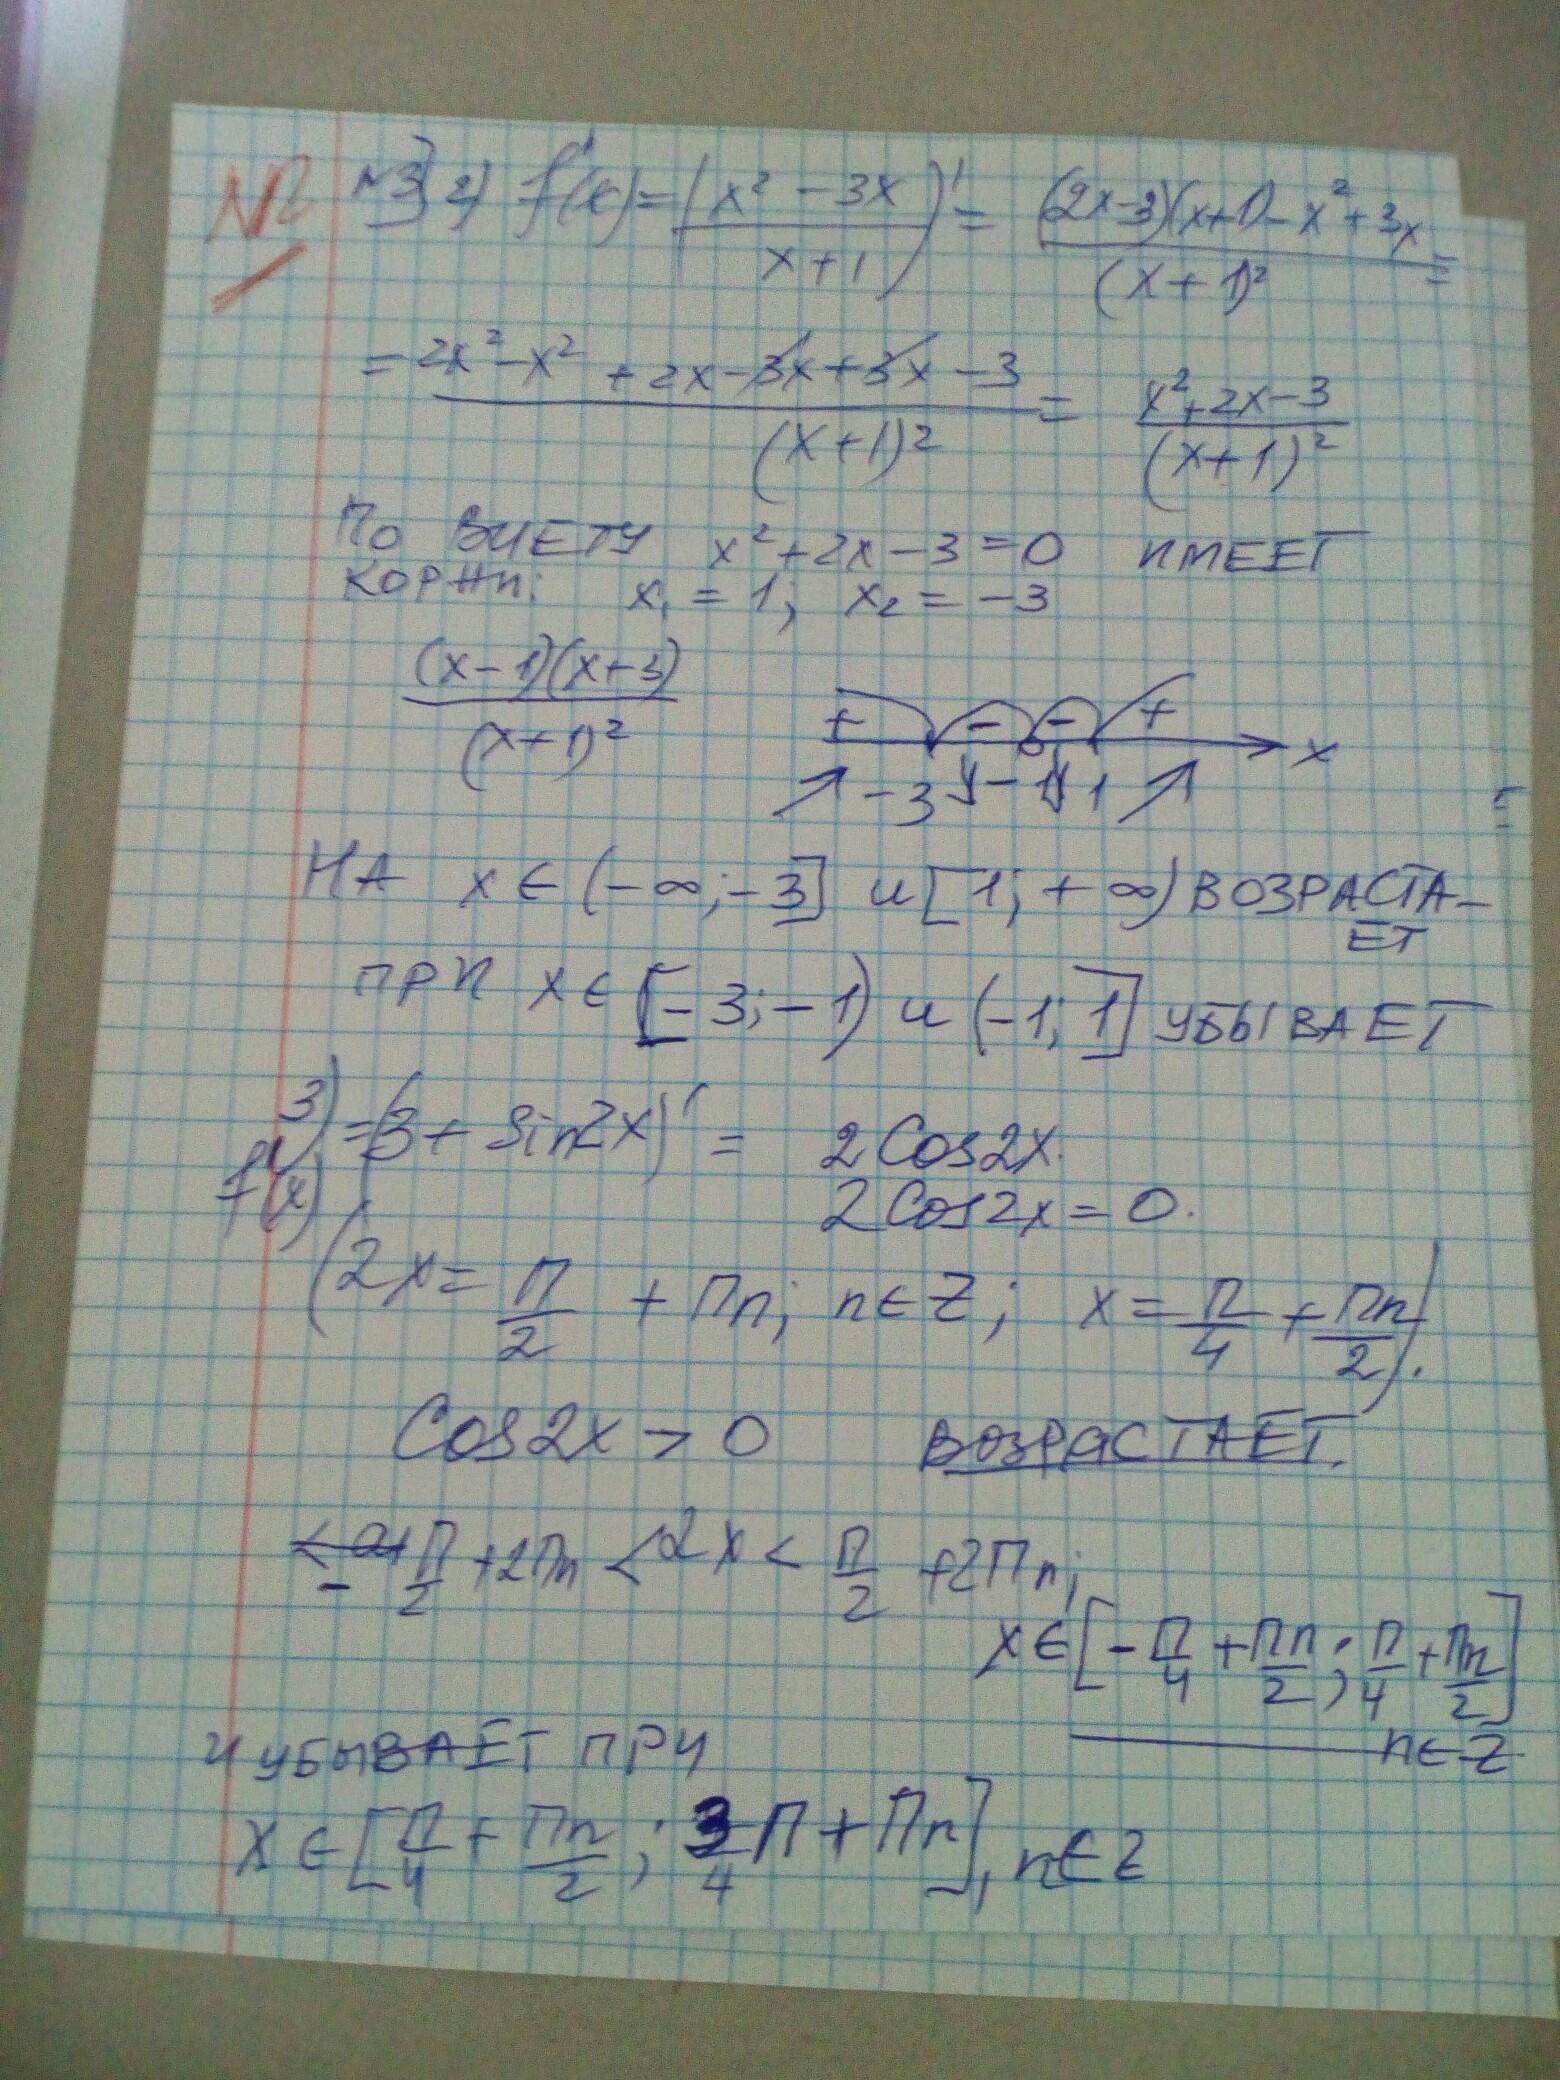 N2 N3 2) f'(x) = ((x² - 3x)/(x+1))' = ((2x-3)(x+1) - x² + 3x)/(x+1)² =
= (2x² - x² + 2x - 3x + 3x - 3)/(x+1)² = (x² + 2x - 3)/(x+1)²
ПО ВИЕТУ x² + 2x - 3 = 0 ИМЕЕТ
КОРНИ: x₁ = 1; x₂ = -3
((x-1)(x+3))/(x+1)²
+ - - + x
↗ -3 ↘ -1 ↘ 1 ↗
НА x ∈ (-∞; -3] и [1; +∞) ВОЗРАСТА-
ЕТ
ПРИ x ∈ [-3; -1) и (-1; 1] УБЫВАЕТ
3) f'(x) = (3 + Sin2x)' = 2Cos2x.
2Cos2x = 0.
(2x = П/2 + Пn; n∈Z; x = П/4 + Пn/2).
Cos2x > 0 ВОЗРАСТАЕТ.
-П/2 + 2Пn < 2x < П/2 + 2Пn;
x ∈ [-П/4 + Пn/2; П/4 + Пn/2]
n∈Z
И УБЫВАЕТ ПРИ
X ∈ [П/4 + Пn/2; 3/4 П + Пn], n∈Z